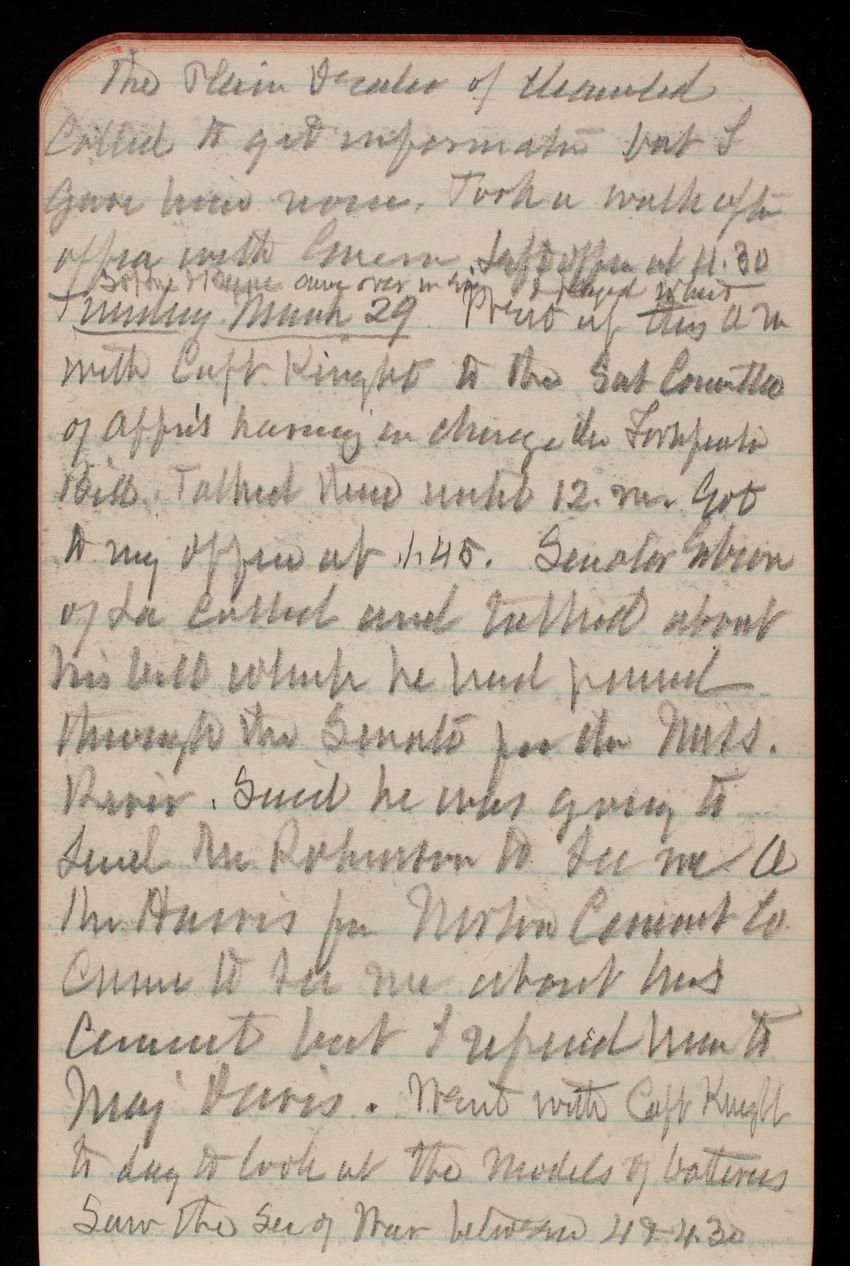 The Plain Dealer of Cleaveland
Called to get informatn but I
gave him none. Took a walk aftr
office with Green. Left office at 4.30
Before came over in and I played whist
Tuesday March 29. Went up this A M
with Capt Knight to the Sub Comttee
of Appr's having in charge the Fortificatn
Bill. Talked there until 12. m. Got
to my office at 1.45. Senator Gibson
of La called and talked about
his bill which he had passed
through the Senate for the Miss.
River. Said he was going to
send Mr Robinson to see me. A
Mr Harris for Norton Cement Co
Came to see me about his
Cement but I refered him to
Maj Davis. Went with Capt Knight
to day to look at the models of batteries
Saw the Sec of War between 4 & 4.30